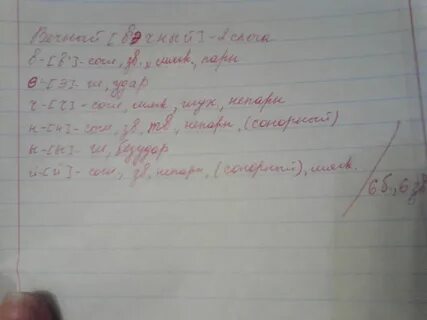 Вечный [вэчный] - 2 слога
в-[в'] - согл, зв, мяк, парн
е-[э] - гл, удар
ч-[ч] - согл, мягк, глух, непарн
н-[н] - согл, зв, тв, непарн, (сонорный)
ы-[ы] - гл, безудар
й-[й] - согл, зв, непарн, (сонорный), мягк.
6б, 6 зв